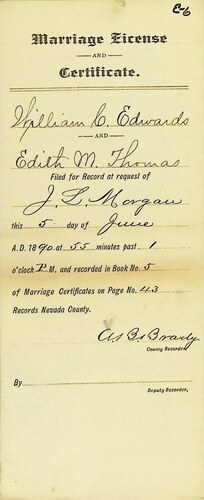 E-6
Marriage License
AND
Certificate.
William C. Edwards
AND
Edith M. Thomas
Filed for Record at request of
J. L. Morgan
this 5 day of June
A.D. 1890 at 55 minutes past 1
o'clock P M, and recorded in Book No. 5
of Marriage Certificates on Page No. 43
Records Nevada County.
A. B. Brady
County Recorder.
By
Deputy Recorder.